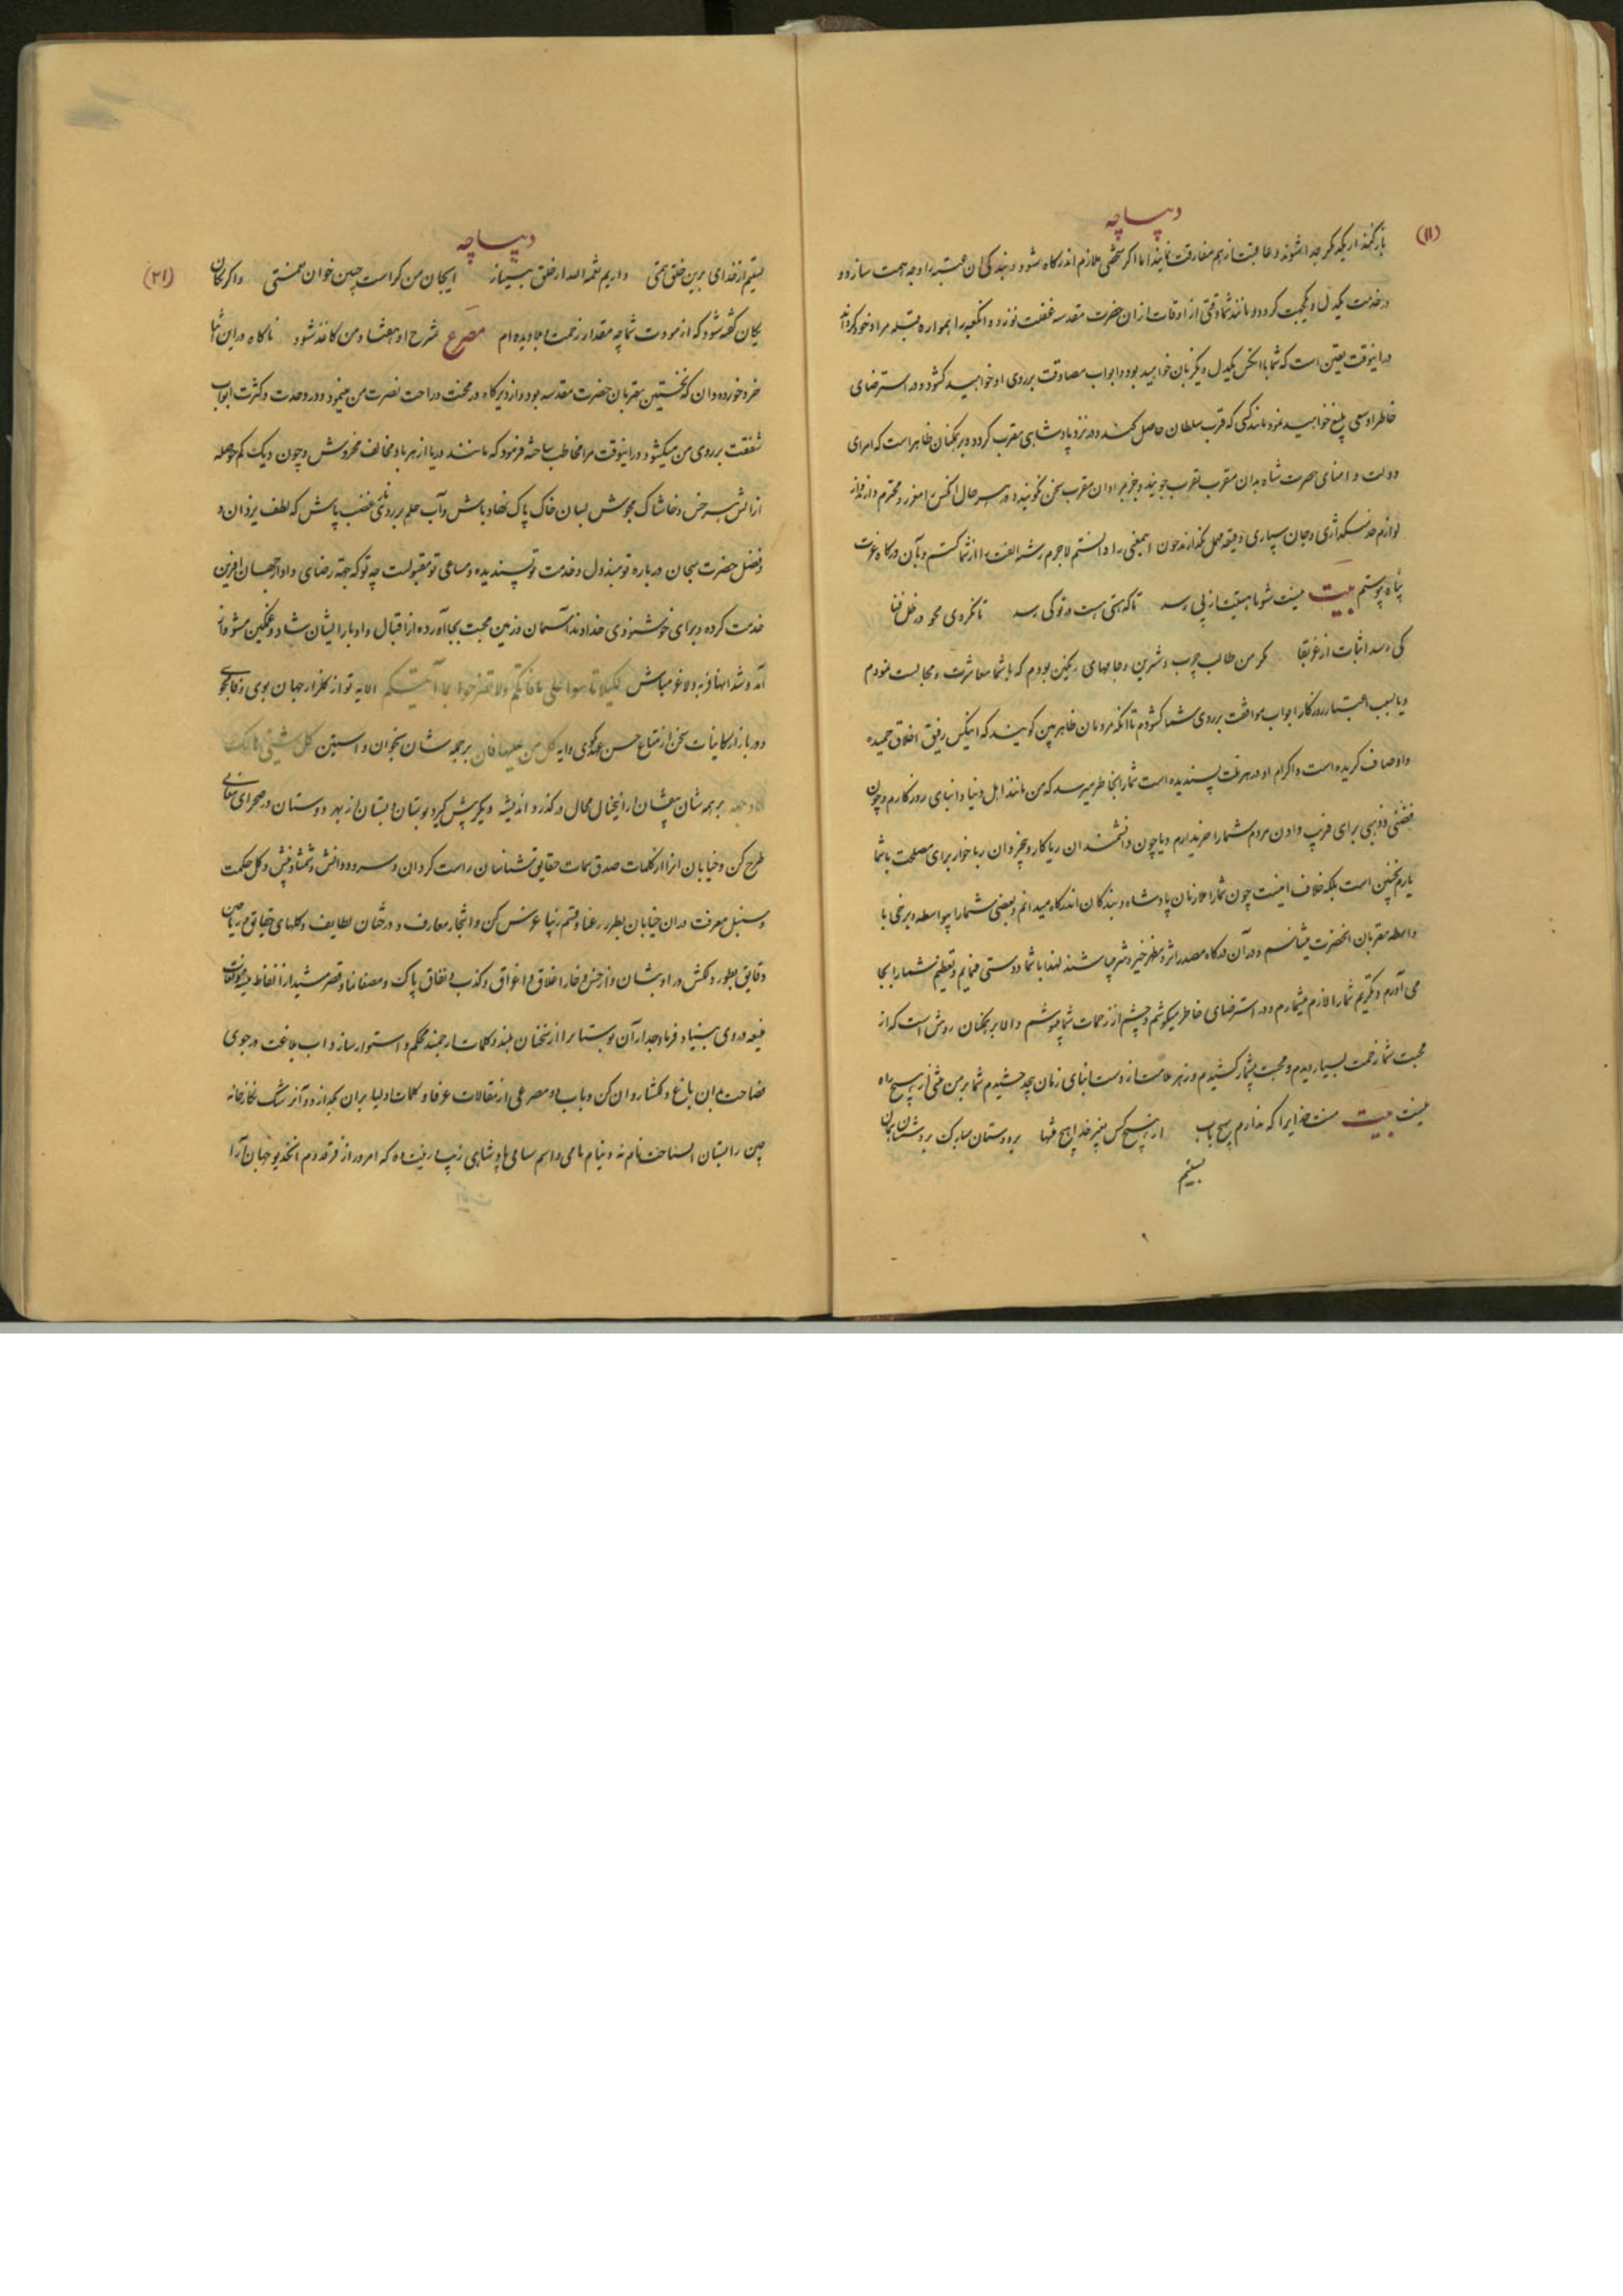 دیباچه
(۱۱)
بازگفتند از یکدیگر جدا نشوند و عاقبت از هم مفارقت نمایند اما اگر شخصی ملازم اندرگاه شود و بندگی ان عتبه را وجه همت سازد و
در خدمت یکدل و یکجهت گردد و مانند شما وقتی از اوقات از ان حضرت مقدسه غفلت نورزد و انکعبه را همواره قبله مراد خود گرداند
در اینوقت یقین است که شما با انکس یکدل و یکزبان خواهید بود و ابواب مصادقت بر روی او خواهید گشود و در استرضای
خاطر او سعی بلیغ خواهید نمود مانند کسی که قرب سلطان حاصل کند و در نزد پادشاهی مقرب گردد و بر همگنان ظاهر است که امرای
دولت و امنای حضرت شاه بدان مقرب تقرب جویند و جز بمراد ان مقرب سخن نگویند و در هر حال انکس را معزز و محترم دارند و از
لوازم خدمتگذاری و جان سپاری دقیقه مهمل نگذارند چون اینمعنی را دانستم لاجرم رشته الفت را از شما گسستم و بآن درگاه عزت
پناه پیوستم بیت نیست شو تا هستیت از پی رسد تا که هستی هست در تو کی رسد تا نگردی محو در ظل فنا
کی رسد اثبات از عز بقا مگر من طالب چرب و شیرین و جامهای رنگین بودم که با شما معاشرت و مجالست نمودم
و یا بسبب اعتبار روزگار ابواب موافقت بر روی شما گشودم تا انکه مردمان ظاهر بین گویند که اینکس رفیق اخلاق حمیده
و اوصاف گزیده است و اکرام او در هر ملت پسندیده است شما را بخاطر میرسد که من مانند اهل دنیا و ابنای روزگارم و چون
فضی و ذهبی برای فریب دادن مردم شما را خریدارم و یا چون دانشمندان ریاکار و بیخردان رباخوار برای مصلحت با شما
یارم نچنین است بلکه خلاف اینست چون شما را ملازمان پادشاه و بندگان اندرگاه میدانم و بعضی شما را بیواسطه و برخی با
واسطه مقربان انحضرت میشناسم و در آن درگاه مصدر اثر و مظهر خیر و شر میباشند لهذا با شما دوستی مینمایم و تعظیم شما را بجا
می آورم و تکریم شما را لازم میشمارم و در استرضای خاطر میکوشم و چشم از زحمات شما میپوشم و الا بر همگنان روشن است که از
محبت شما زحمت بسیار دیدم و محنت بیشمار کشیدم و زهر ملامت از دست ابنای زمان بیحد چشیدم شما بر من منتی از هیچ راه
نیست بیت منت خدایرا که ندارم بهیچ باب از هیچکس بغیر خدا هیچ منتها بر دوستان مبارک و بر دشمنان
نیستیم
دیباچه
(۲۱)
نیستیم از خدای برین خلق منتی داریم نعمة الله از خلق بینیاز ایجان من کراست چنین خوان نعمتی و اگر یکان
یکان گفته شود که از مودت شما چه مقدار زحمت و بلا دیده ام مصرع شرح او هفتاد من کاغذ شود ناگاه در این اثنا
خرد خورده دان که نخستین مقربان حضرت مقدسه بود و از دیرگاه در محنت و راحت نصرت من مینمود و در وحدت و کثرت ابواب
شفقت بر روی من میگشود در اینوقت مرا مخاطب ساخته فرمود که مانند دریا از هر باد مخالف مخروش و چون دیگ کم حوصله
از اتش هر خس و خاشاک مجوش بسان خاک پاک نهاد باش و آب حلم بر روی نار غضب پاش که لطف یزدان و
و فضل حضرت سبحان درباره تو مبذول و خدمت تو پسندیده و مساعی تو مقبولست چه تو که جهة رضای داور جهان افرین
خدمت کرده و برای خوشنودی خداوند آسمان و زمین محبت بجا آورده از اقبال و ادبار ایشان شاد و غمگین مشو و از
آمد و شد انها فربه و لاغر مباش لکیلا تأسوا علی ما فاتکم ولا تفرحوا بما آتیکم الایه تو از گلزار جهان بوی وفا مجو
و در بازار کاینات سخن از متاع حسن عهد مگوی و ایه کل من علیها فان بر جمله شان بخوان و استین کل شیئی هالک
الا وجهه بر همه شان بیفشان از اینخیال محال درگذر و اندیشه دیگر پیش گیر و بوستان و بستان از بهر دوستان در صحرای معانی
طرح کن و خیابان انرا از کلمات صدق سمات حقایق شناسان راست گردان و سرو دانش و شمشاد بینش و گل حکمت
و سنبل معرفت در ان خیابان بطرز رعنا و قسم زیبا غرس کن و اشجار معارف و درختان لطایف و گلهای حقایق و ریاحین
دقایق بطور دلکش در او بنشان و از خس و خار اغلاق و اغراق و کذب و نفاق پاک و مصفا نما و قصر مشید از الفاظ متینه و لغات
منیعه در وی بنیاد فرما و جدار آن بوستانرا از سخنان بلند و کلمات ارجمند محکم و استوار ساز و اب بلاغت در جوی
فصاحت ان باغ و گلشن روان کن و باب و مصرعی از مقالات عرفا و کلمات اولیا بران بگذار و آنرا رشک نگارخانه
چین را بستان السیاحت نام نه و بنام نامی و اسم سامی پادشاهی زیب و زینت ده که امروز از فر قدوم انخدیو جهان آرا